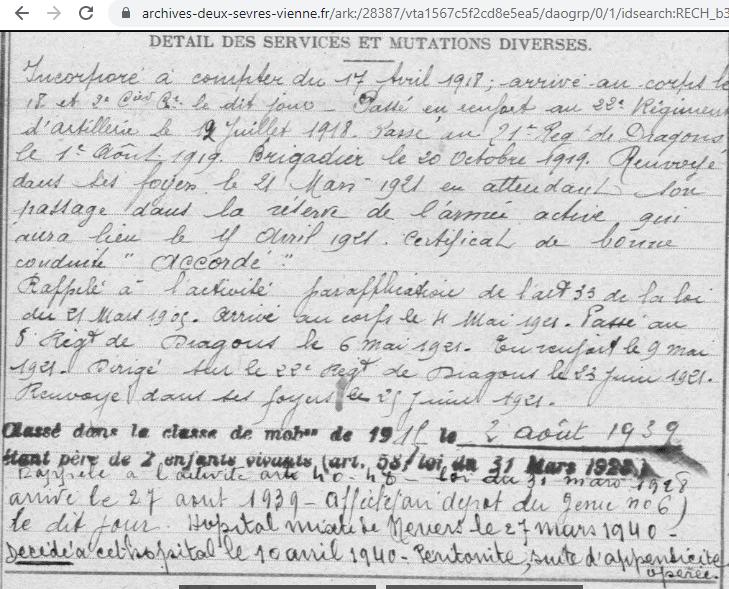 archives-deux-sevres-vienne.fr/ark:/28387/vta1567c5f2cd8e5ea5/daogrp/0/1/idsearch:RECH_b3
DETAIL DES SERVICES ET MUTATIONS DIVERSES.
Incorporé à compter du 17 Avril 1918; arrivé au corps le
18 et 2e le dit jour - Passé en renfort au 22e Régiment
d'artillerie le Juillet 1918. Passé au 21e Reg. de Dragons
le 1er Août 1919. Brigadier le 20 Octobre 1919. Renvoyé
dans ses foyers le 21 Mars 1921 en attendant son
passage dans la réserve de l'armée active qui
aura lieu le Avril 1921. Certificat de bonne
conduite "Accordé"
Rappelé à l'activité par application de l'art 33 de la loi
du 21 Mars 1905. Arrivé au corps le 4 Mai 1921. Passé au
Regt de Dragons le 6 mai 1921. En renfort le 9 mai
1921. Dirigé sur le 22e Regt de Dragons le 23 juin 1921.
Renvoyé dans ses foyers le 25 Juin 1921.
Classé dans la classe de mobon de 19 le 2 août 1939
étant père de 2 enfants vivants (art. 58/ loi du 31 Mars 1928)
Rappelé à l'activité arte 40-48 - loi du 31 mars 1928
arrivé le 27 août 1939 - Affecté au dépôt du génie no 6)
le dit jour. Hôpital mixte de Nevers le 27 mars 1940 -
Décédé à cet hôpital le 10 avril 1940 - Péritonite, suite d'appendicite
opérée.